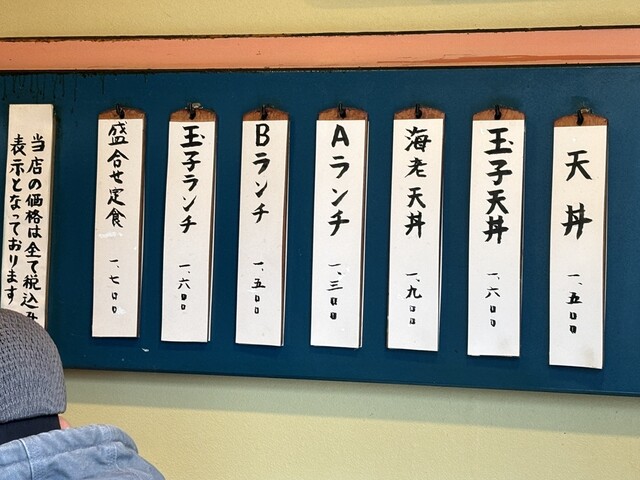 天丼
一、五〇〇
玉子天丼
一、六〇〇
海老天丼
一、九〇〇
Aランチ
一、三〇〇
Bランチ
一、五〇〇
玉子ランチ
一、六〇〇
盛合せ定食
一、七〇〇
当店の価格は全て税込み
表示となっております